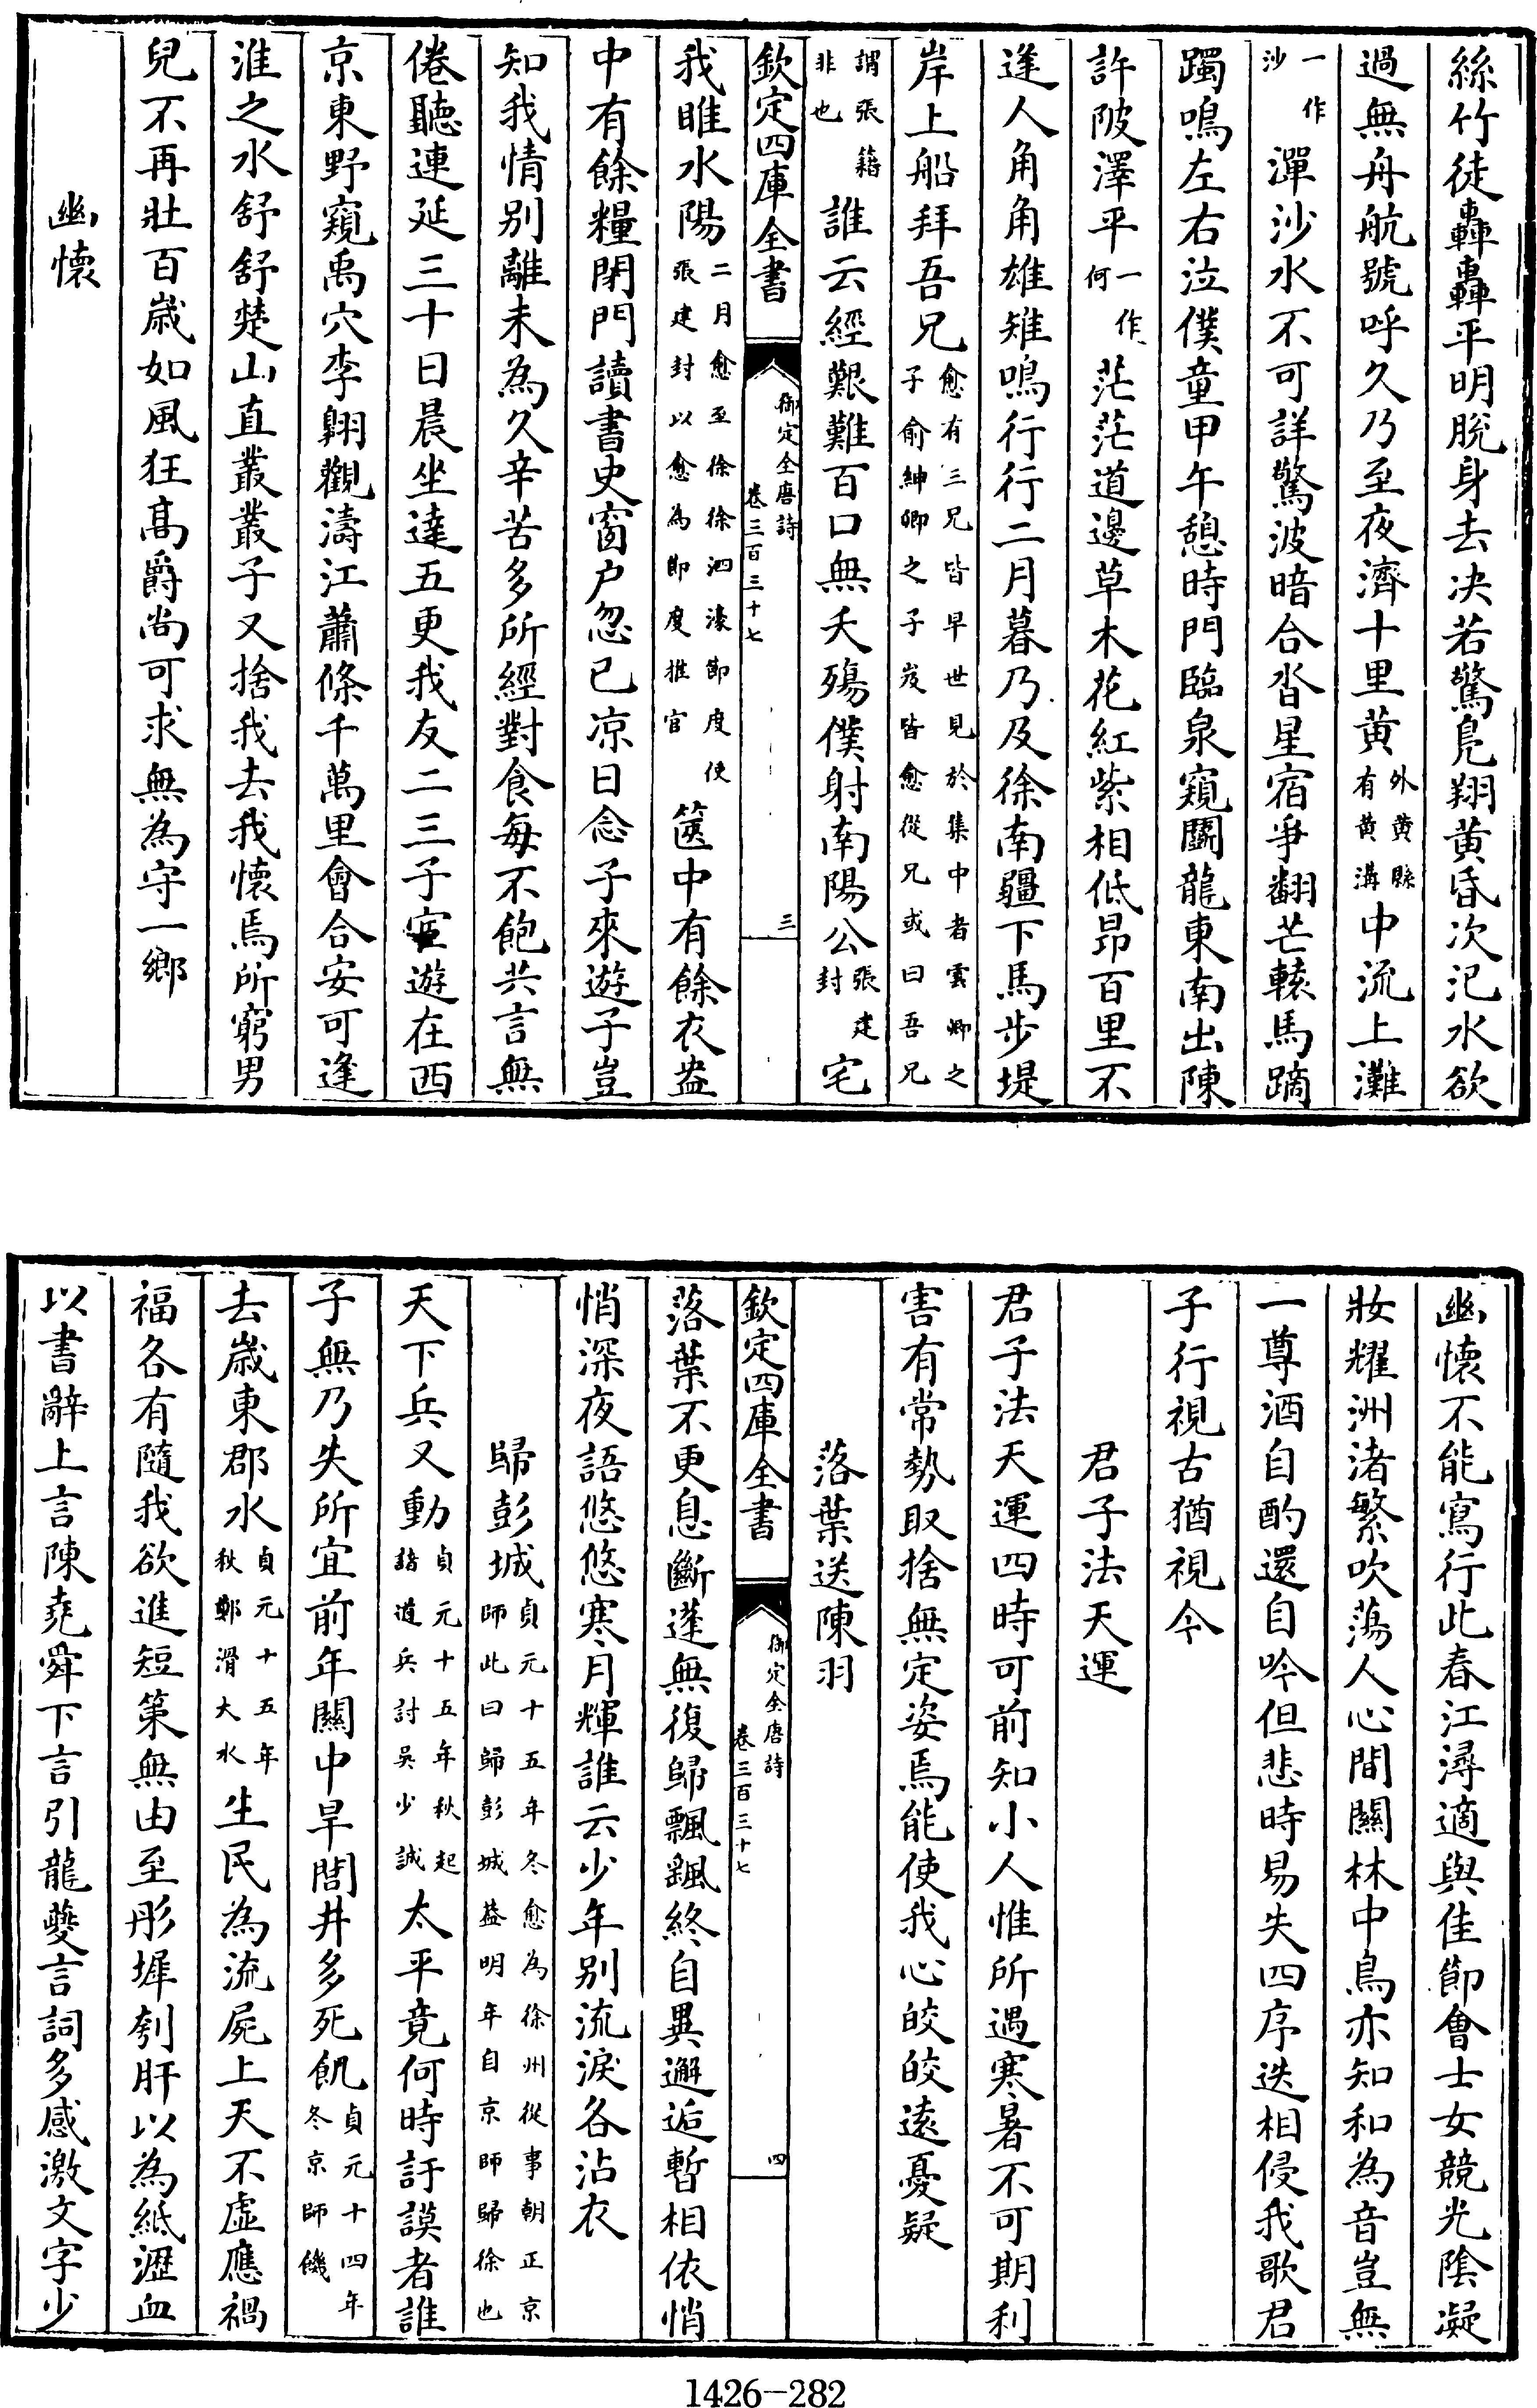 絲竹徒轟轟平明脫身去决若驚鳧翔黄昏次汜水欲
過無舟航號呼久乃至夜濟十里黄外黄縣有黄溝中流上灘
一作沙灘沙水不可詳驚波暗合沓星宿爭翻芒轅馬蹢
躅鳴左右泣僕童甲午憩時門臨泉窺鬭龍東南出陳
許陂澤平一作何茫茫道邊草木花紅紫相低昂百里不
逢人角角雄雉鳴行行二月暮乃及徐南疆下馬步堤
岸上船拜吾兄愈有三兄皆早世見於集中者雲卿之子俞紳卿之子岌皆愈從兄或曰吾兄
謂張籍非也誰云經艱難百口無夭殤僕射南陽公張建封宅
欽定四庫全書 御定全唐詩 卷三百三十七 三
我睢水陽二月愈至徐徐泗濠節度使張建封以愈為節度推官篋中有餘衣盎
中有餘糧閉門讀書史窗户忽已凉日念子來遊子豈
知我情别離未為久辛苦多所經對食每不飽共言無
倦聽連延三十日晨坐達五更我友二三子宦遊在西
京東野窺禹穴李翺觀濤江蕭條千萬里會合安可逢
淮之水舒舒楚山直叢叢子又捨我去我懷焉所窮男
兒不再壯百嵗如風狂高爵尚可求無為守一鄉
幽懷
幽懷不能寫行此春江潯適與佳節會士女競光陰凝
妝耀洲渚繁吹蕩人心間關林中鳥亦知和為音豈無
一尊酒自酌還自吟但悲時易失四序迭相侵我歌君
子行視古猶視今
君子法天運
君子法天運四時可前知小人惟所遇寒暑不可期利
害有常勢取捨無定姿焉能使我心皎皎遠憂疑
落葉送陳羽
欽定四庫全書 御定全唐詩 卷三百三十七 四
落葉不更息斷蓬無復歸飄颻終自異邂逅暫相依悄
悄深夜語悠悠寒月輝誰云少年别流淚各沾衣
歸彭城貞元十五年冬愈為徐州從事朝正京師此曰歸彭城葢明年自京師歸徐也
天下兵又動貞元十五年秋起諸道兵討吳少誠太平竟何時訏謨者誰
子無乃失所宜前年關中旱閭井多死飢貞元十四年冬京師饑
去嵗東郡水貞元十五年秋鄭滑大水生民為流屍上天不虛應禍
福各有隨我欲進短策無由至彤墀刳肝以為紙瀝血
以書辭上言陳堯舜下言引龍夔言詞多感激文字少
1426-282